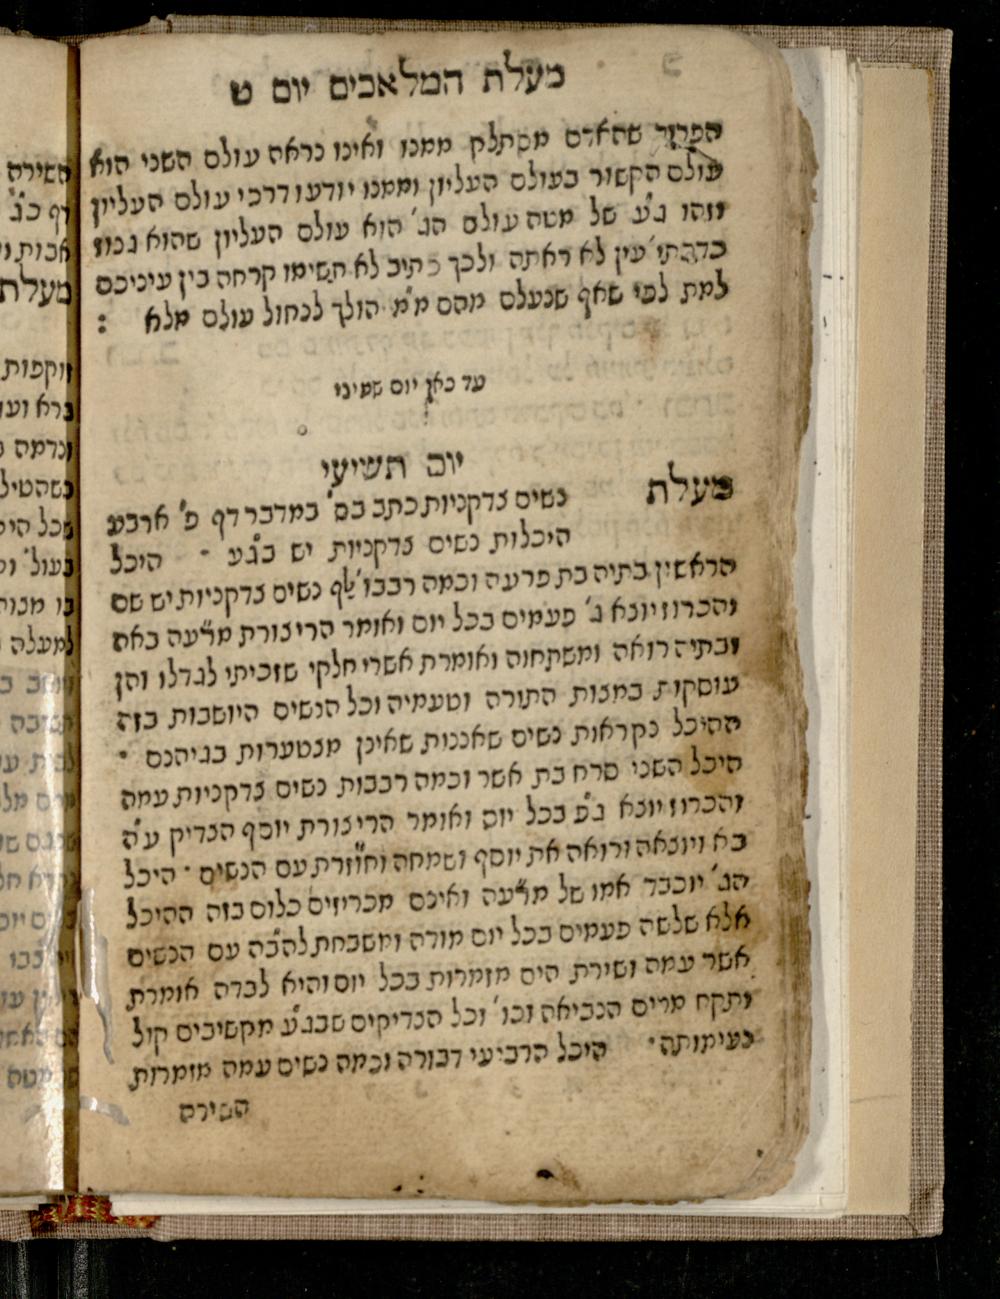 מעלת המלאכים יום ט
הפרוד שהאדם מסתלק ממנו ואינו נראה עולם השני הוא
עולם הקשור בעולם העליון וממנו יודעו דרכי עולם העליון
וזהו ג"ע של מטה עולם הג' הוא עולם העליון שהוא גנוז
כדכתי' עין לא ראתה ולכך כתיב לא תשימו קרחה בין עיניכם
למת לפי שאף שנעלם מהם מ"מ הולך לנחול עולם מלא :
עד כאן יום שמיני
יום תשיעי
מעלת נשים צדקניות כתב בס' במדבר דף פ' ארבע
היכלות נשים צדקניות יש בג"ע · היכל
הראשון בתיה בת פרעה וכמה רבבו' אף נשים צדקניות יש שם
והכרוז יוצא ג' פעמים בכל יום ואומר הרי צורת מר"עה באה
ובתיה רואה ומשתחוה ואומרת אשרי חלקי שזכיתי לגדלו והן
עוסקות במצות התורה וטעמיה וכל הנשים היושבות בזה
ההיכל נקראות נשים שאננות שאינן מצטערות בגיהנם ·
היכל השני סרח בת אשר וכמה רבבות נשים צדקניות עמה
והכרוז יוצא ג"פ בכל יום ואומר הרי צורת יוסף הצדיק ע"ה
בא ויוצאה ורואה את יוסף ושמחה וחוזרת עם הנשים · היכל
הג' יוכבד אמו של מר"עה ואינם מכריזים כלום בזה ההיכל
אלא שלשה פעמים בכל יום מודה ומשבחת להב"ה עם הנשים
אשר עמה ושירת הים מזמרות בכל יום והיא לבדה אומרת
ותקח מרים הנביאה וכו' וכל הצדיקים שבג"ע מקשיבים קול
נעימותה · היכל הרביעי דבורה וכמה נשים עמה מזמרות
השירה
השירה
דף כ"ג
אבות
מעלת
זוקפות
ברא
ונדמה
כשהטיל
שכל
מנות
למעלה